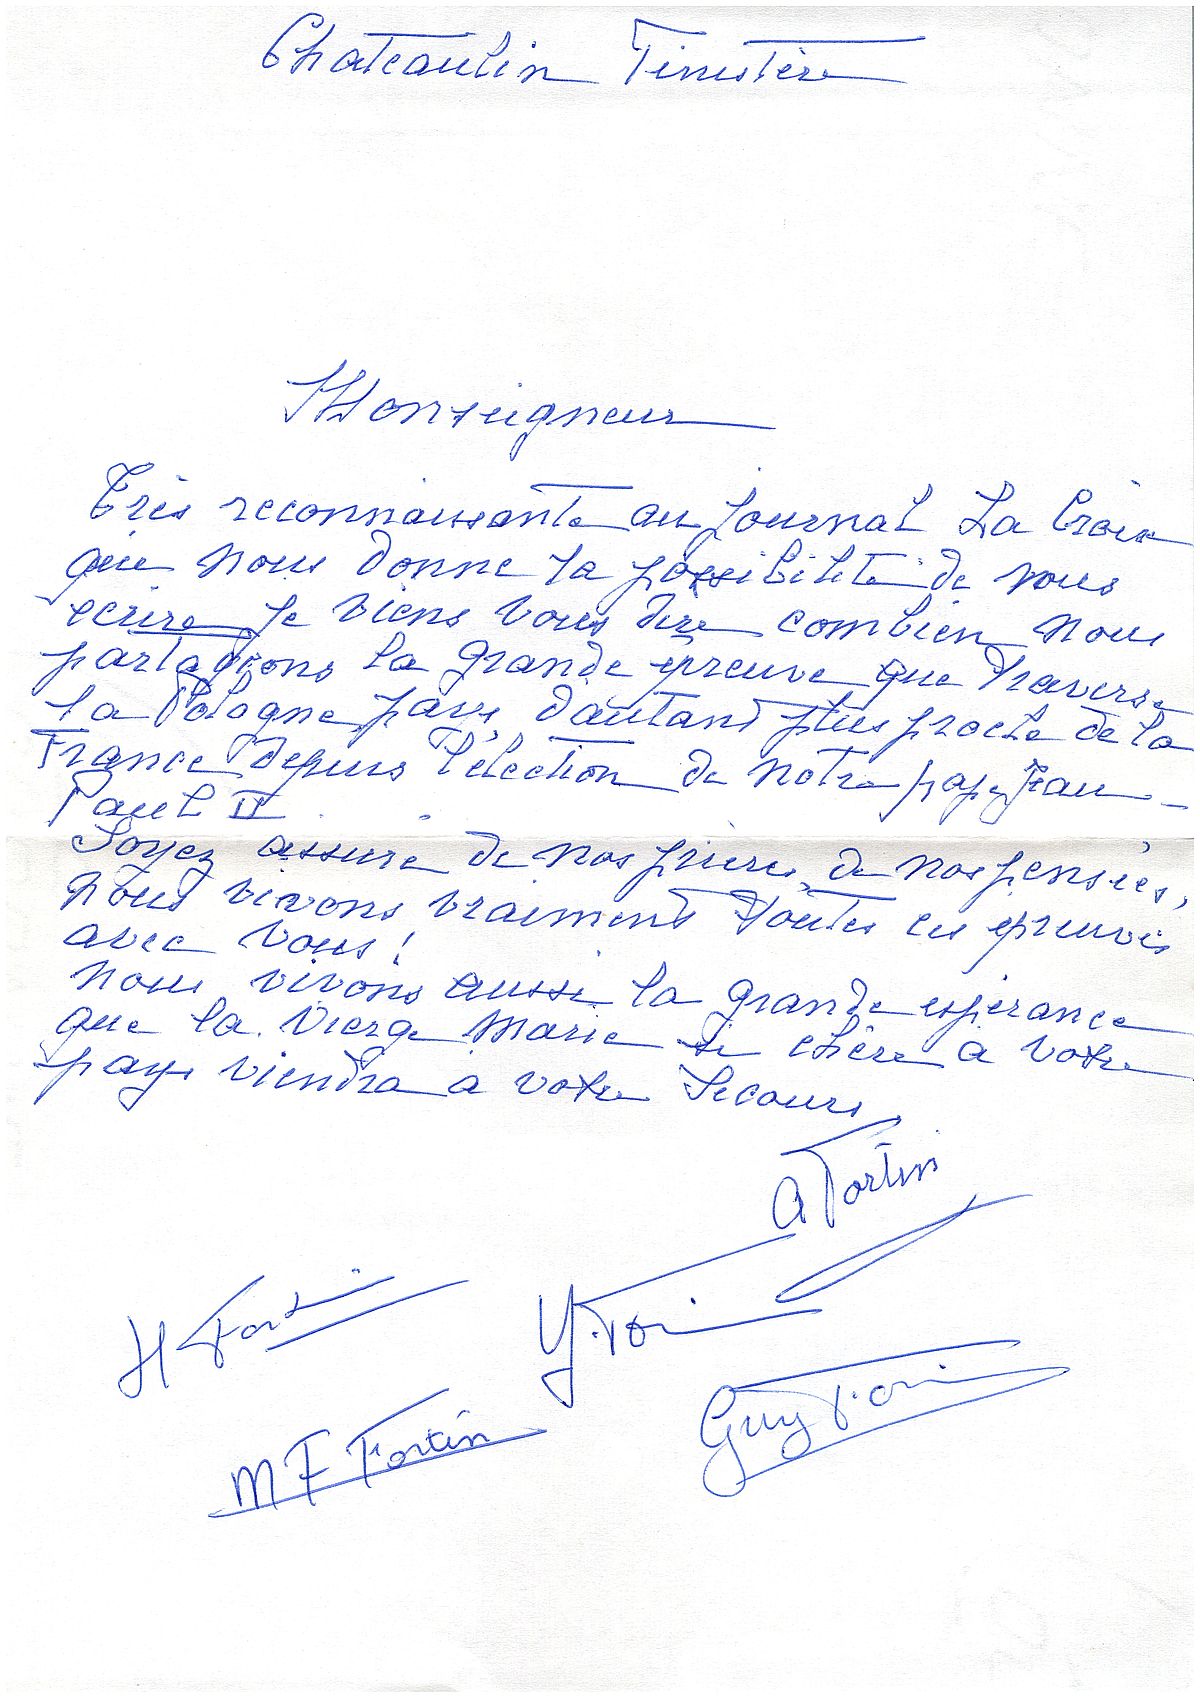 Chateaulin Finistère
Monseigneur
Très reconnaissante au journal La Croix
qui nous donne la possibilité de vous
écrire je viens vous dire combien nous
partageons la grande épreuve que traverse
la Pologne pays, d'autant plus proche de la
France depuis l'élection de notre pape Jean-
Paul II.
Soyez assuré de nos prières, de nos pensées,
nous vivons vraiment toutes ces épreuves
avec vous!
Nous vivons aussi la grande espérance
que la Vierge Marie si chère à votre
pays viendra à votre secours
A Fortin
H Fortin
Y. Fortin
Guy Fortin
M F Fortin